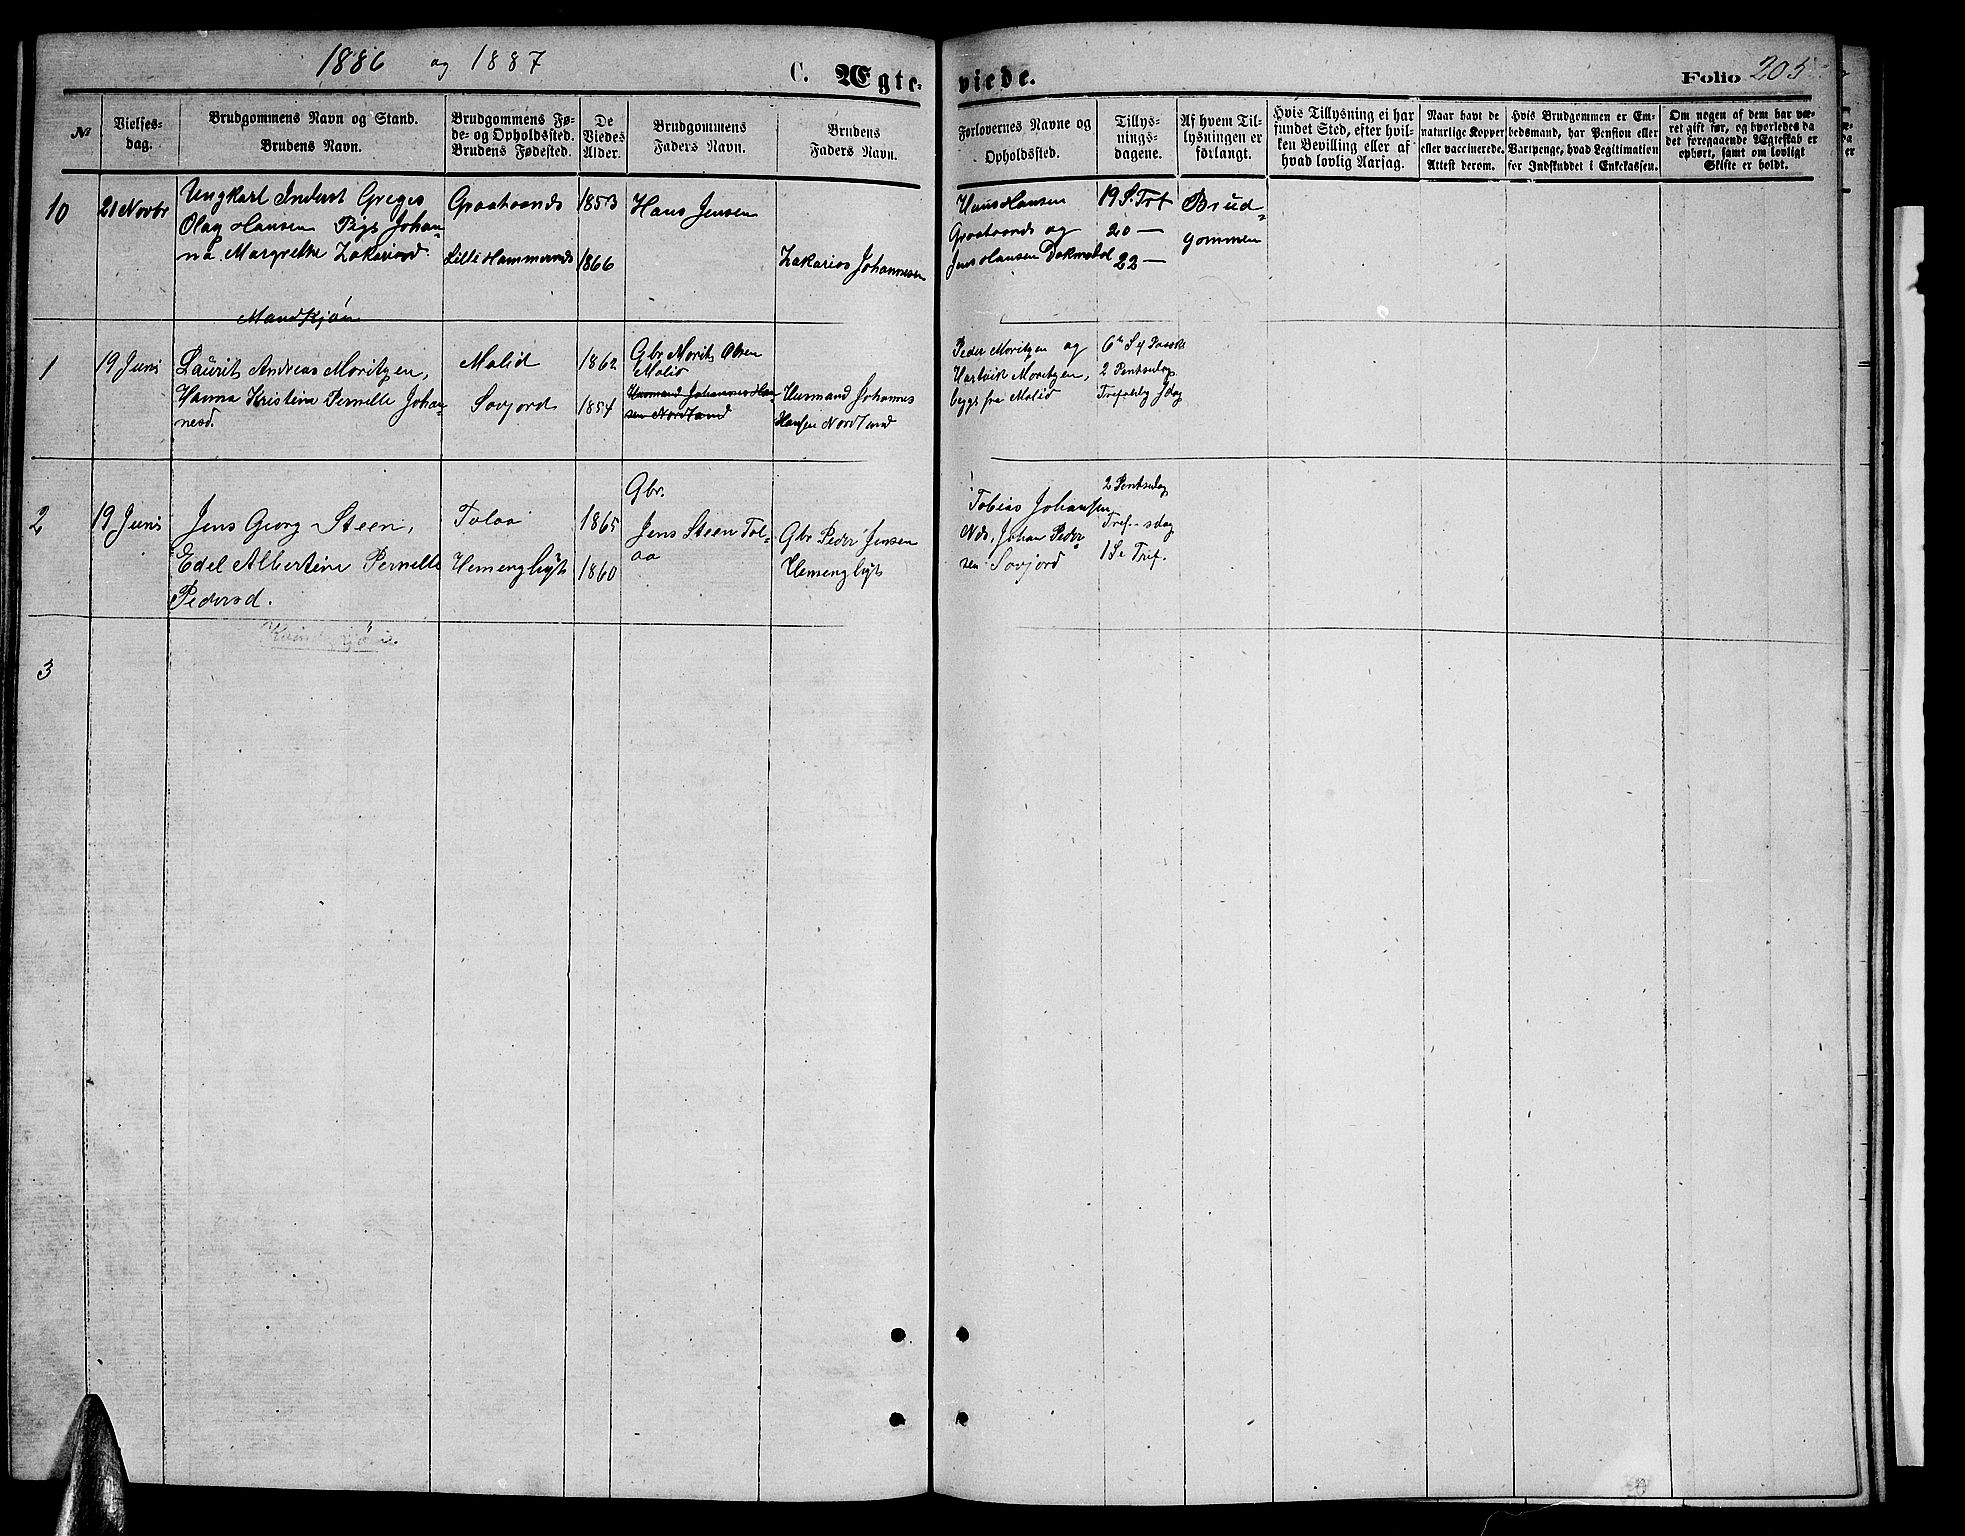 1886 og 1887
C. Ægte-
viede.
Folio 205
№
Vielses-
dag.
Brudgommens Navn og Stand.
Brudens Navn.
Brudgommens Fø-
de- og Opholdssted.
Brudens Fødested.
De
Viedes
Alder.
Brudgommens
Faders Navn.
Brudens
Faders Navn.
Forlovernes Navne og
Opholdssted.
Tillys-
nings-
dagene.
Af hvem Til-
lysningen er
forlangt.
Hvis Tillysning ei har
fundet Sted, efter hvil-
ken Bevilling eller af
hvad lovlig Aarsag.
Naar havt de
naturlige Kopper
eller vaccinerede.
Attest derom.
Hvis Brudgommen er Em-
bedsmand, har Pension eller
Vartpenge, hvad Legitimation
for Indskuddet i Enkekassen.
Om nogen af dem har væ-
ret gift før, og hvorledes da
det foregaaende Ægteskab er
ophørt, samt om lovligt
Skifte er holdt.
10
21 Novbr
Ungkarl Indert Greges
Olag Hansen Pige Johan-
na Margrethe Zakariasd.
Graatrands
Lille Hammerands
1853
1866
Hans Jensen
Zakarias Johannesen
Hans Hansen
Graatrands og
Jens Hansen
19 S. Trt
20 —
22 —
Brud-
gommen
Mandkjøn
1
19 Juni
Laurits Andreas Moritzen,
Hanna Kristine Pernille Johan
nesd.
Molid
Sovjord
1862
1854
Gbr Morits Olsen
Molid
Husmand Johannes Han
sen Nordland
Husmand Johannes
Hansen Nordland
Peder Moritzen og
Hartvik Moritzen,
begge fra Molid
6te S ef Paaske
2 Pentsedag
2
19 Juni
Jens Georg Steen,
Edel Albertine Pernille
Pedersd.
Tolaa
Hemenghygt
1865
1860
Gbr.
Jens Steen Tol-
aa
Gbr Peder Jensen
Hemenghygt
Tobias Johansen
Nds, Johan Peder
sen Sovjord
2 Pentsedag
Tref..sdag
1 S e Tref.
Kvindekjøn.
3